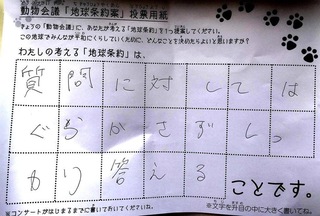 動物会議「地球条約案」投票用紙
きょうの「動物会議」に、あなたが考える「地球条約」を1つ提案してください。
この地球でみんなが平和にくらしていくために、どんなことを決めたらよいと思いますか?
わたしの考える「地球条約」は、
質問に対しては
ぐらかさずしっ
かり答える
ことです。
※コンサートがはじまるまでに書いておいてくださいね。
※文字を升目の中に大きく書いてね。